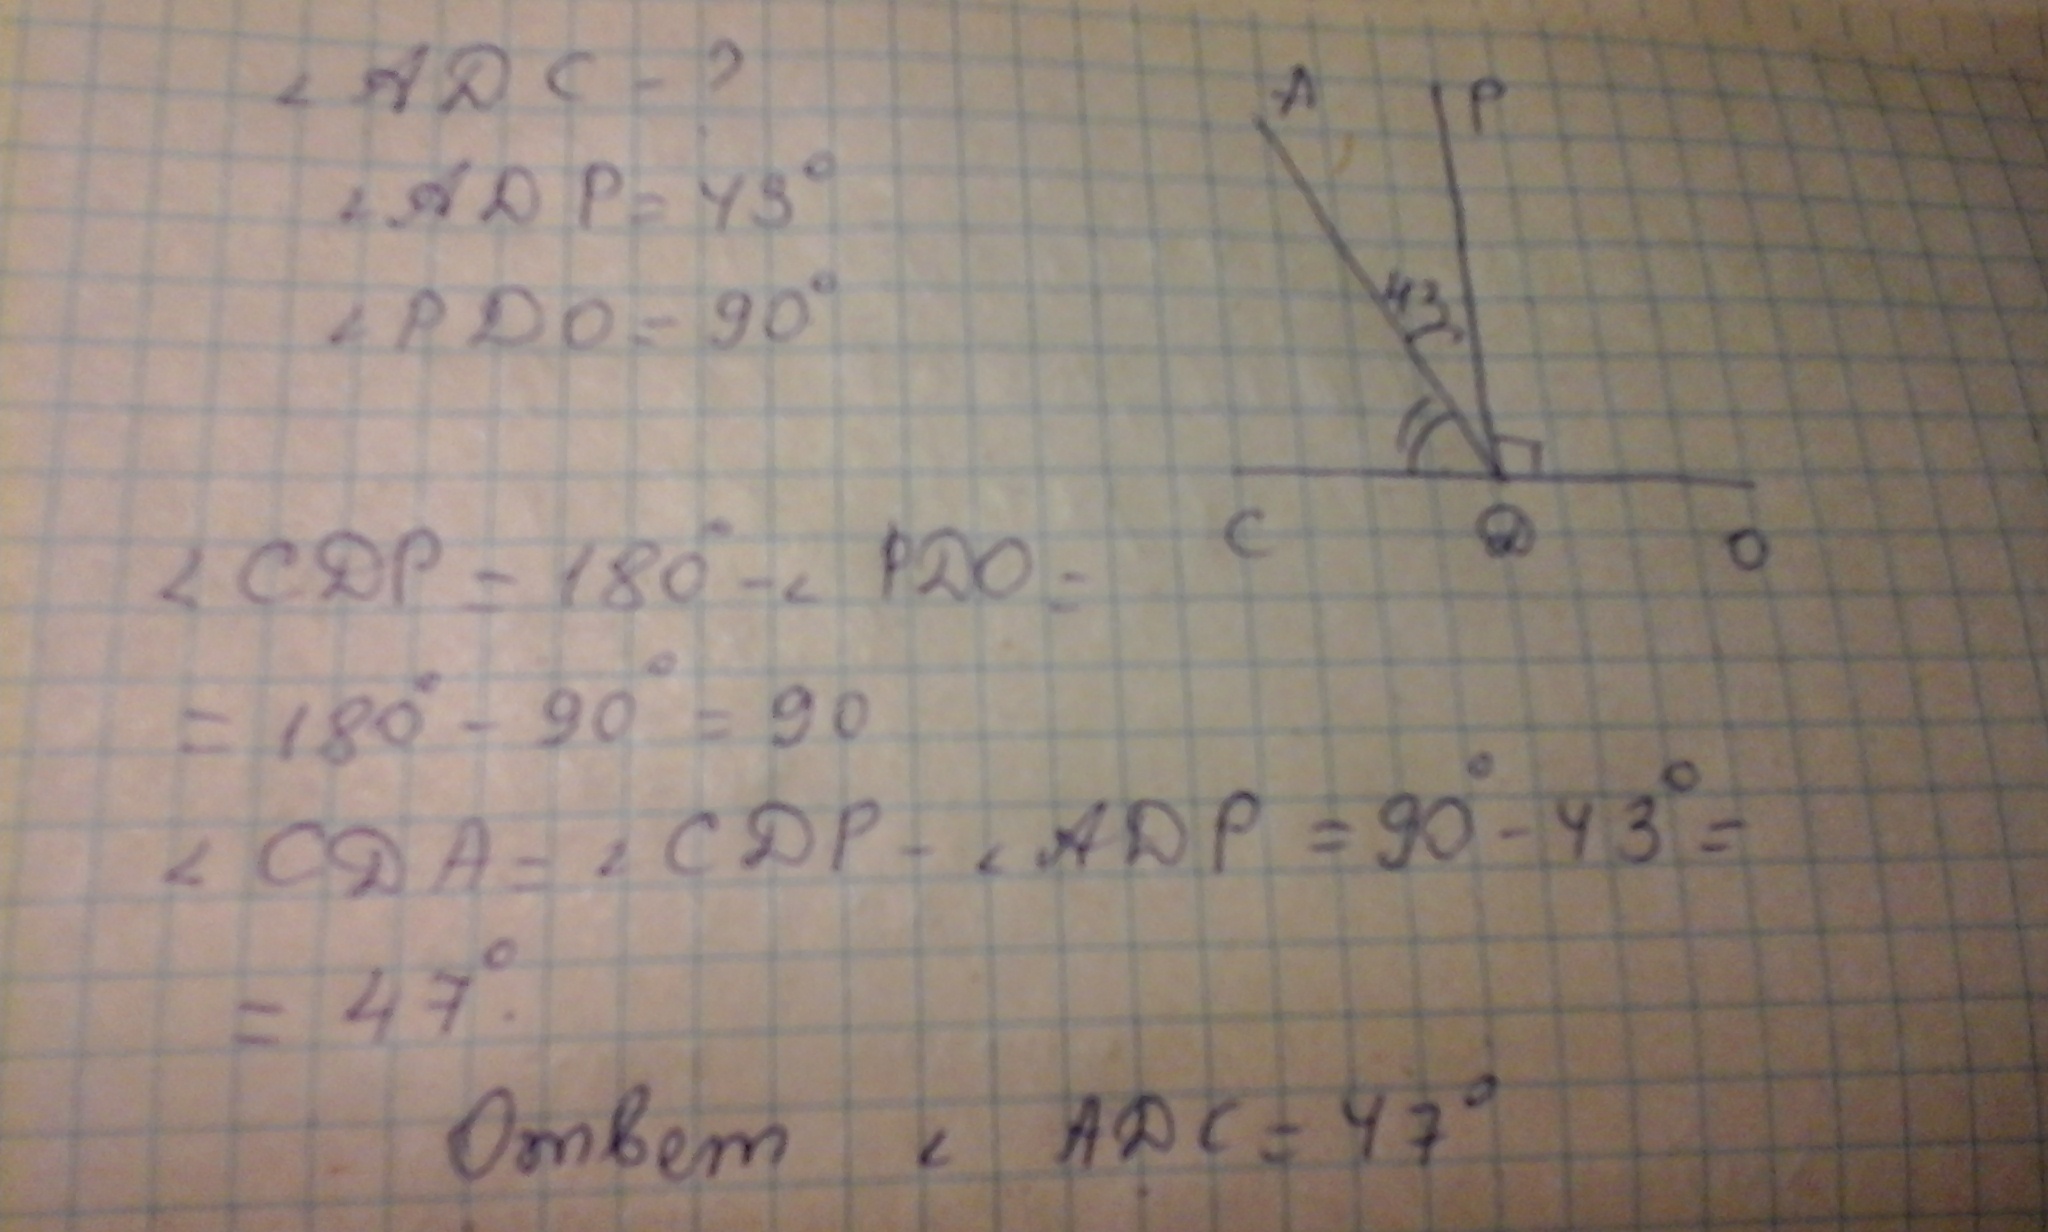 ∠ADC - ?
∠ADP = 43°
∠PDO = 90°
A P
43
C D O
∠CDP = 180° - ∠PDO =
= 180° - 90° = 90
∠CDA = ∠CDP - ∠ADP = 90° - 43° =
= 47°.
Ответ ∠ADC = 47°